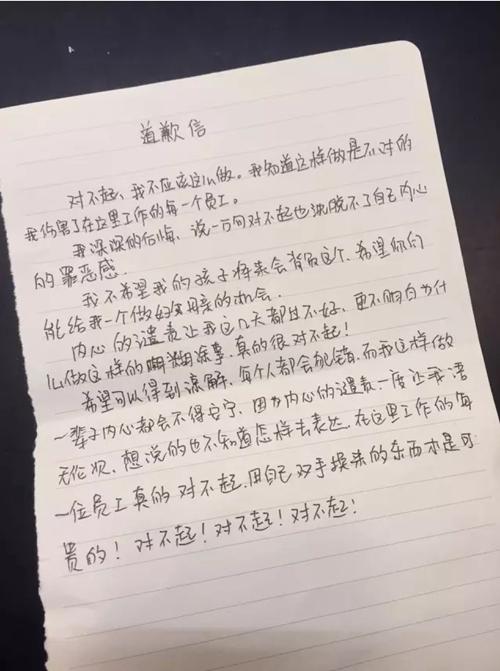 道歉信
对不起、我不应该这么做。我知道这样做是不对的
我伤害了在这里工作的每一个员工。
我深深的后悔、说一万句对不起也洗脱不了自己内心
的罪恶感.
我不希望我的孩子将来会背负这个.希望你们
能给我一个做好母亲的机会.
内心的谴责让我这几天都过不好、更不明白为什
么做这样的糊涂事.真的很对不起!
希望可以得到谅解、每个人都会犯错.而我这样做
一辈子内心都会不得安宁、因为内心的谴责一度让我语
无伦次、想说的也不知道怎样去表达.在这里工作的每
一位员工真的对不起.用自己双手换来的东西才是可
贵的! 对不起! 对不起! 对不起!